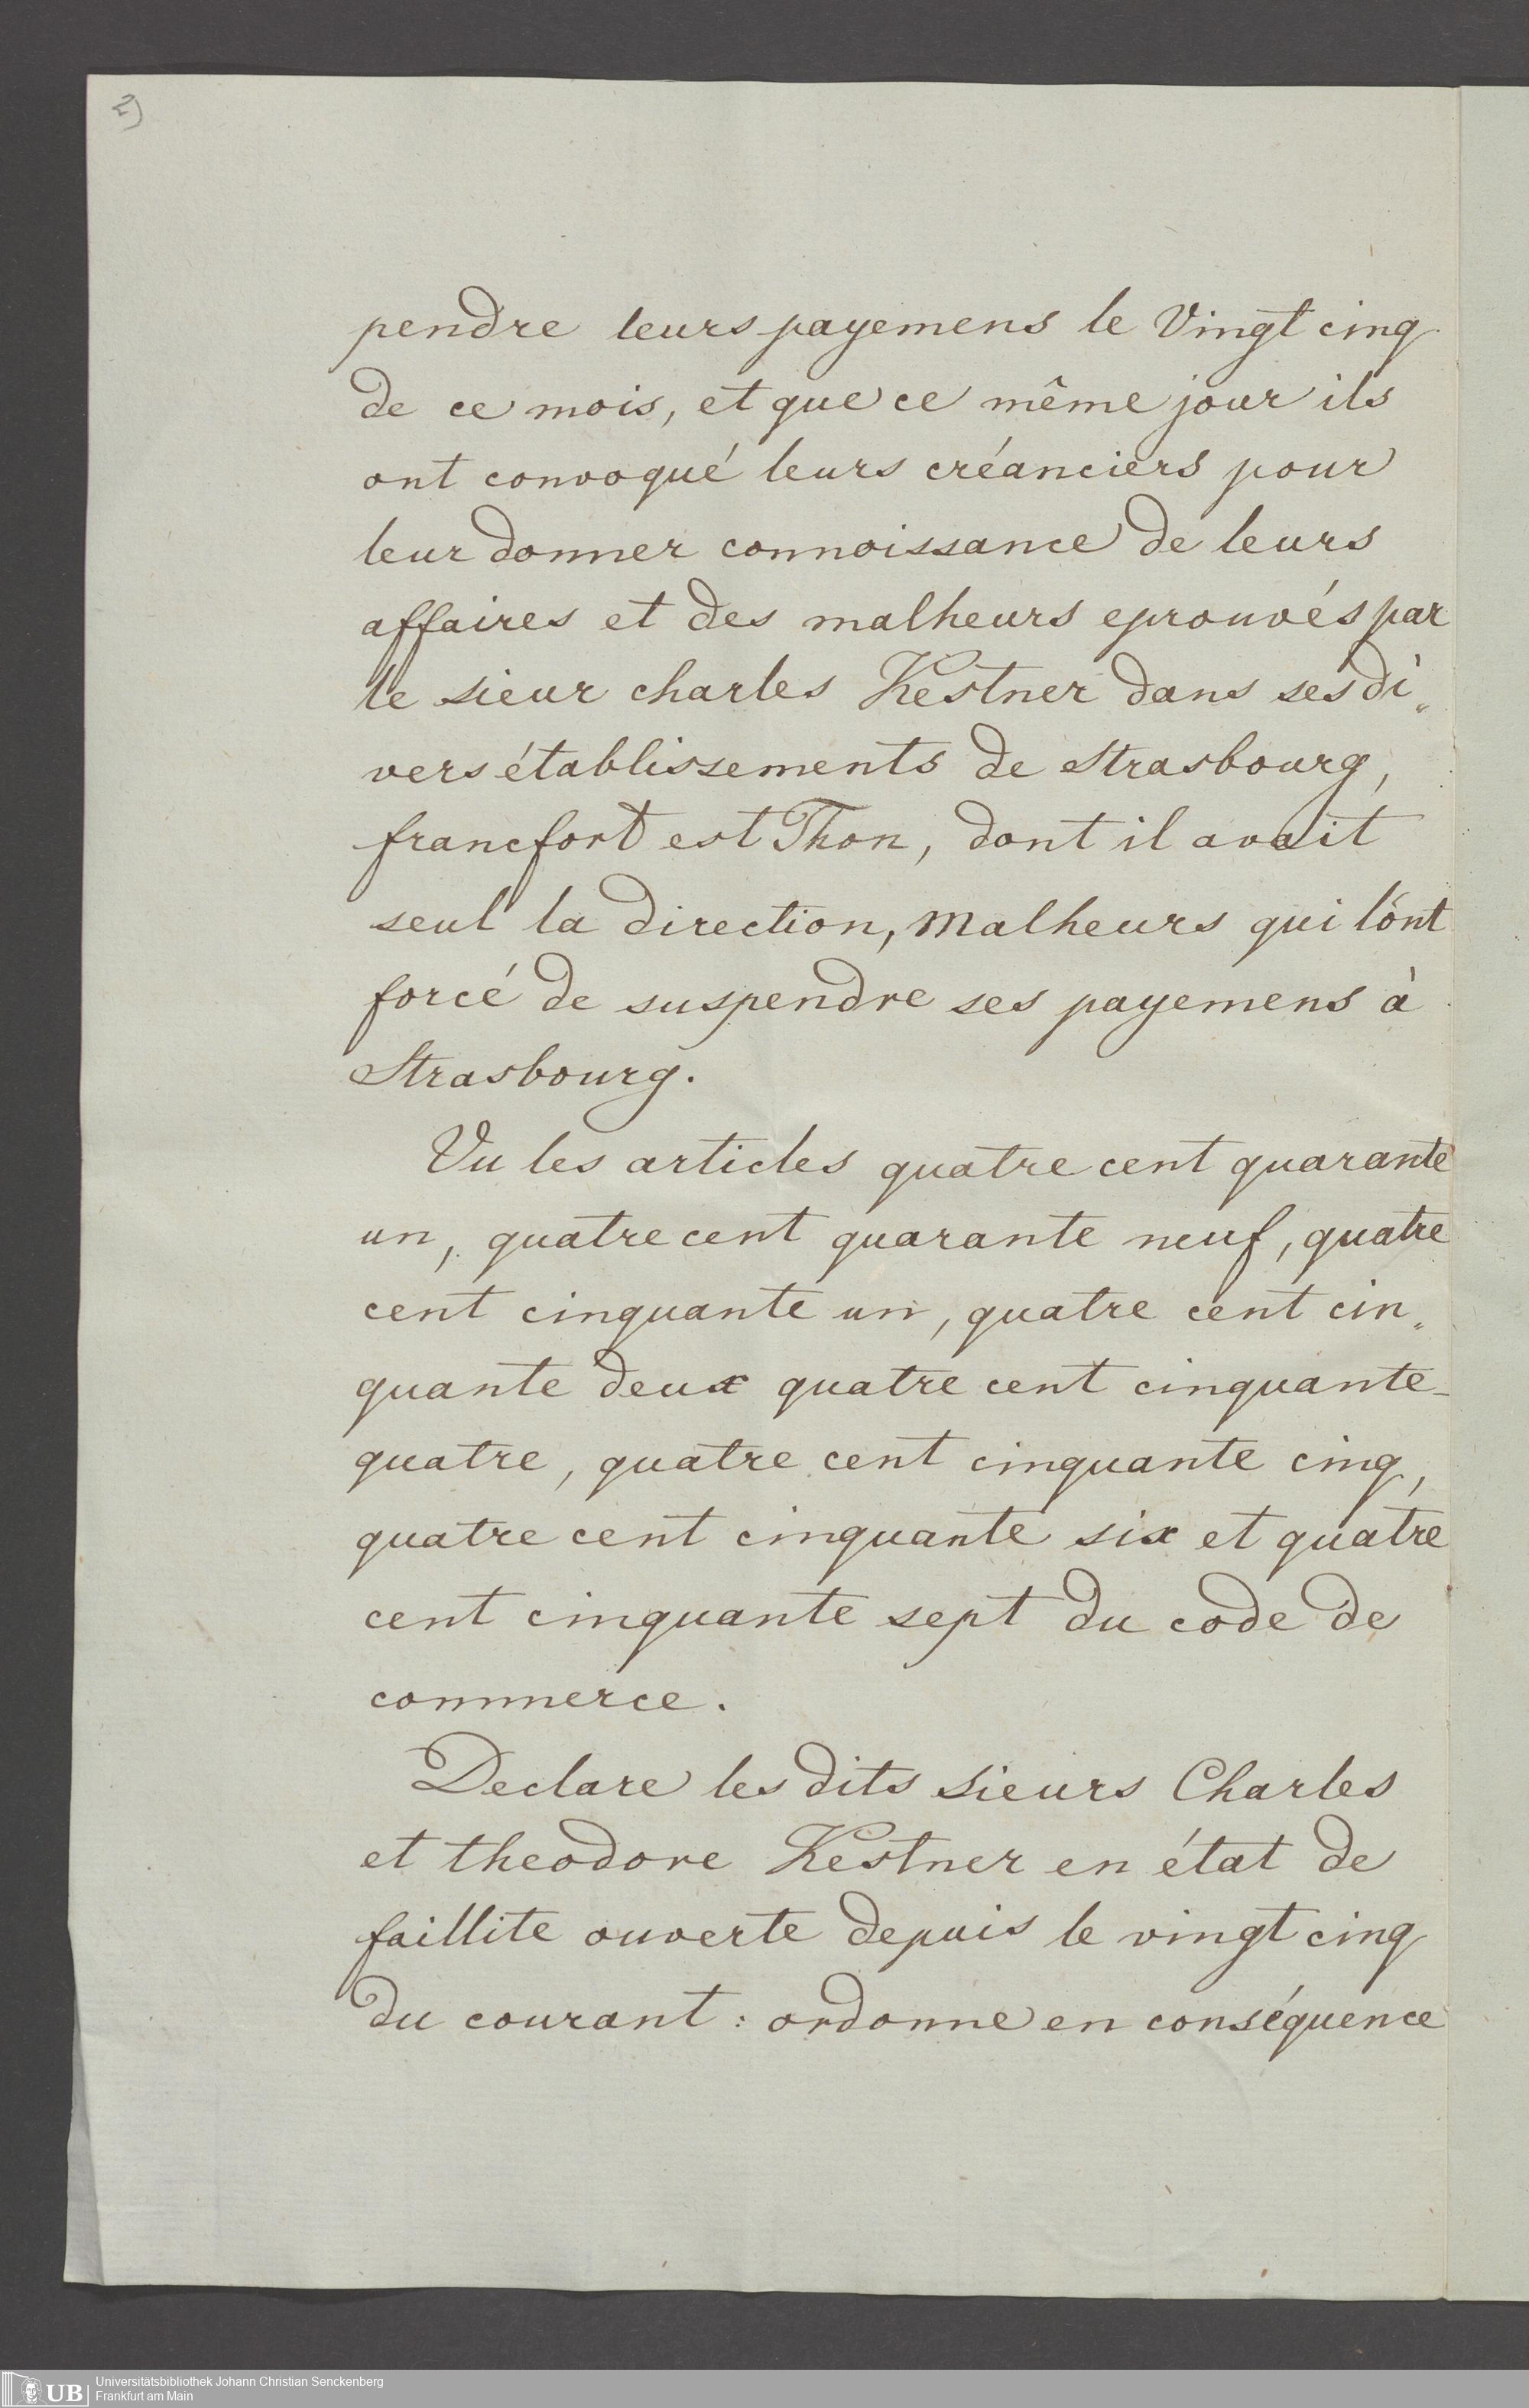 2)
pendre leurs payemens le Vingt cinq
de ce mois, et que ce même jour ils
ont convoqué leurs créanciers pour
leur donner connoissance de leurs
affaires et des malheurs eprouvés par
le sieur charles Kestner dans ses di„
vers établissements de Strasbourg,
francfort est Thon, dont il avait
seul la direction, Malheurs qui lónt
forcé de suspendre ses payemens à
Strasbourg.
Vu les articles quatre cent quarante
un, quatre cent quarante neuf, quatre
cent cinquante un, quatre cent cin„
quante deux quatre cent cinquante-
quatre, quatre cent cinquante cinq,
quatre cent cinquante six et quatre
cent cinquante sept du code de
commerce.
Declare les dits sieurs Charles
et theodore Kestner en état de
faillite ouverte depuis le vingt cinq
du courant : ordonne en conséquence
UB
Universitätsbibliothek Johann Christian Senckenberg
Frankfurt am Main